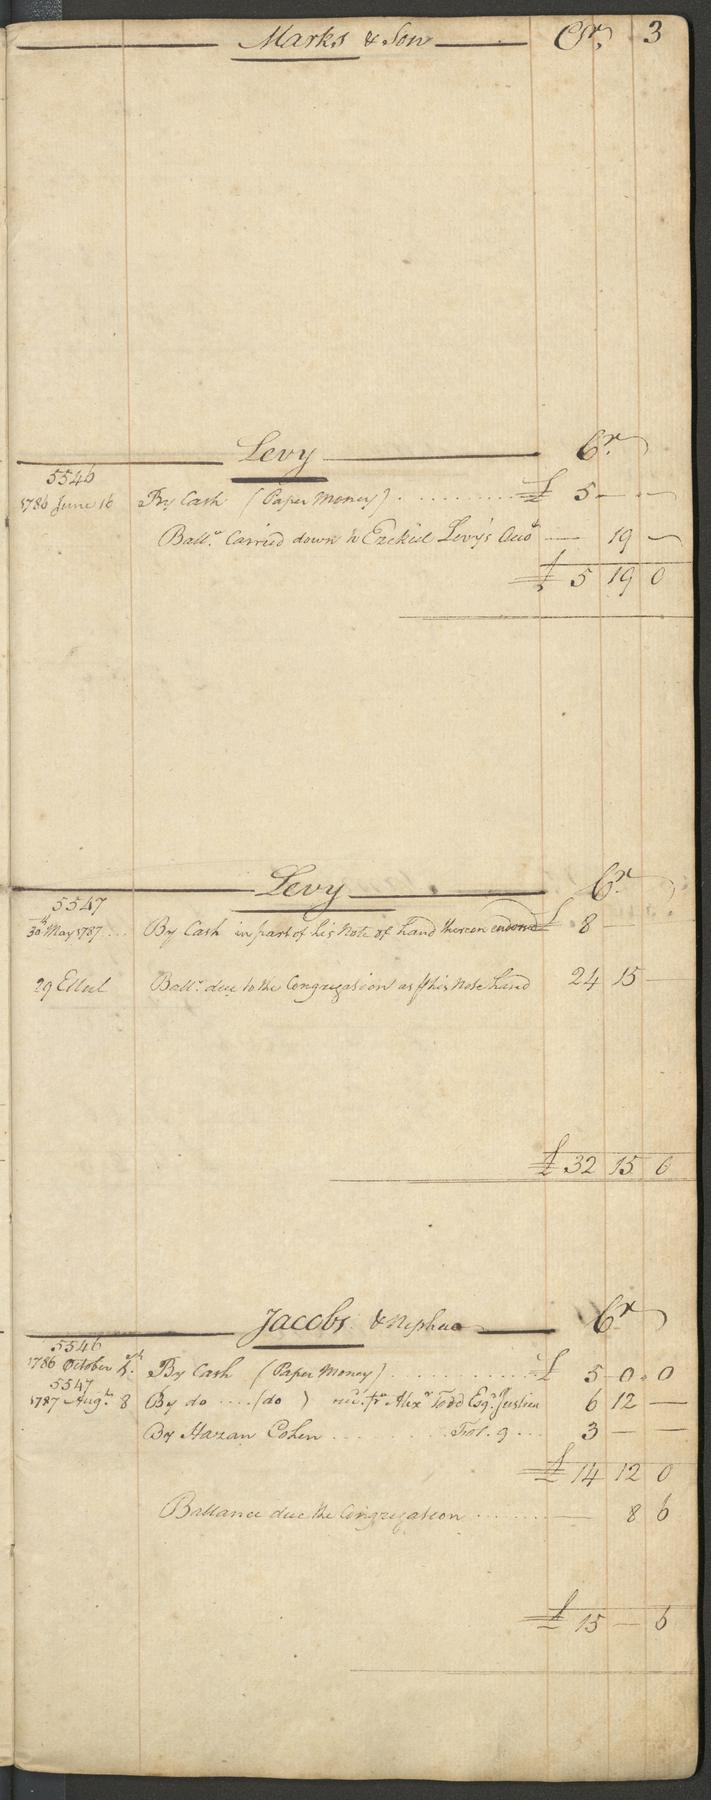 Marks & Son Cr. 3
Levy Cr.
5546
1786 June 16 By Cash (Paper Money) £ 5 — —
Ballce. Carried down to Ezekiel Levy's Acco — 19 —
£ 5 19 0
Levy Cr.
5547
30th May 1787 By Cash in part of his Note of hand thereon endorsd £ 8 — —
29 Ellul Ballce. due to the Congregation as # his Note hand 24 15 —
£ 32 15 0
Jacobs & Nephew Cr.
5546
1786 October 4th. By Cash (Paper Money) £ 5 0 0
5547
1787 Augt. 8 By do (do) rec. fr Alexr Todd Esqr. 6 12 —
By Hazan Cohen Fol. 9 3 — —
£ 14 12 0
Ballance due the Congregation — 8 6
£ 15 — 6